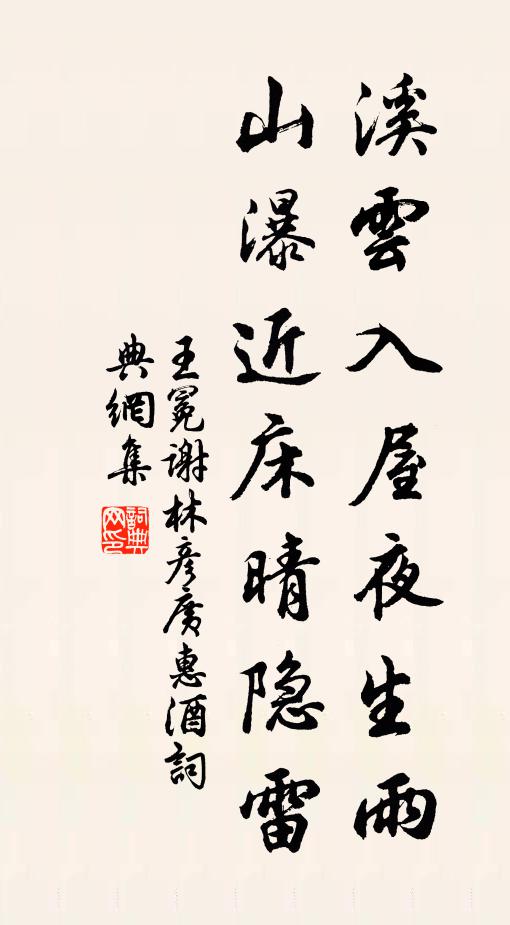 溪雲入屋夜生雨
山瀑近床晴隐雷
王冕谢林彦廣惠酒詞
典網集
詞典网印